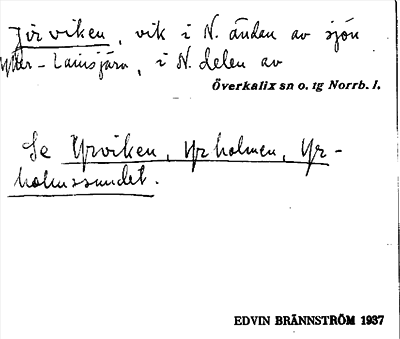 Jirviken, vik i N. änden av sjön
Ytter-Lainsjärv, i N. delen av
Överkalix sn o. tg Norrb. l.
Se Yrviken, Yrholmen, Yr-
holmssundet.
EDVIN BRÄNNSTRÖM 1937